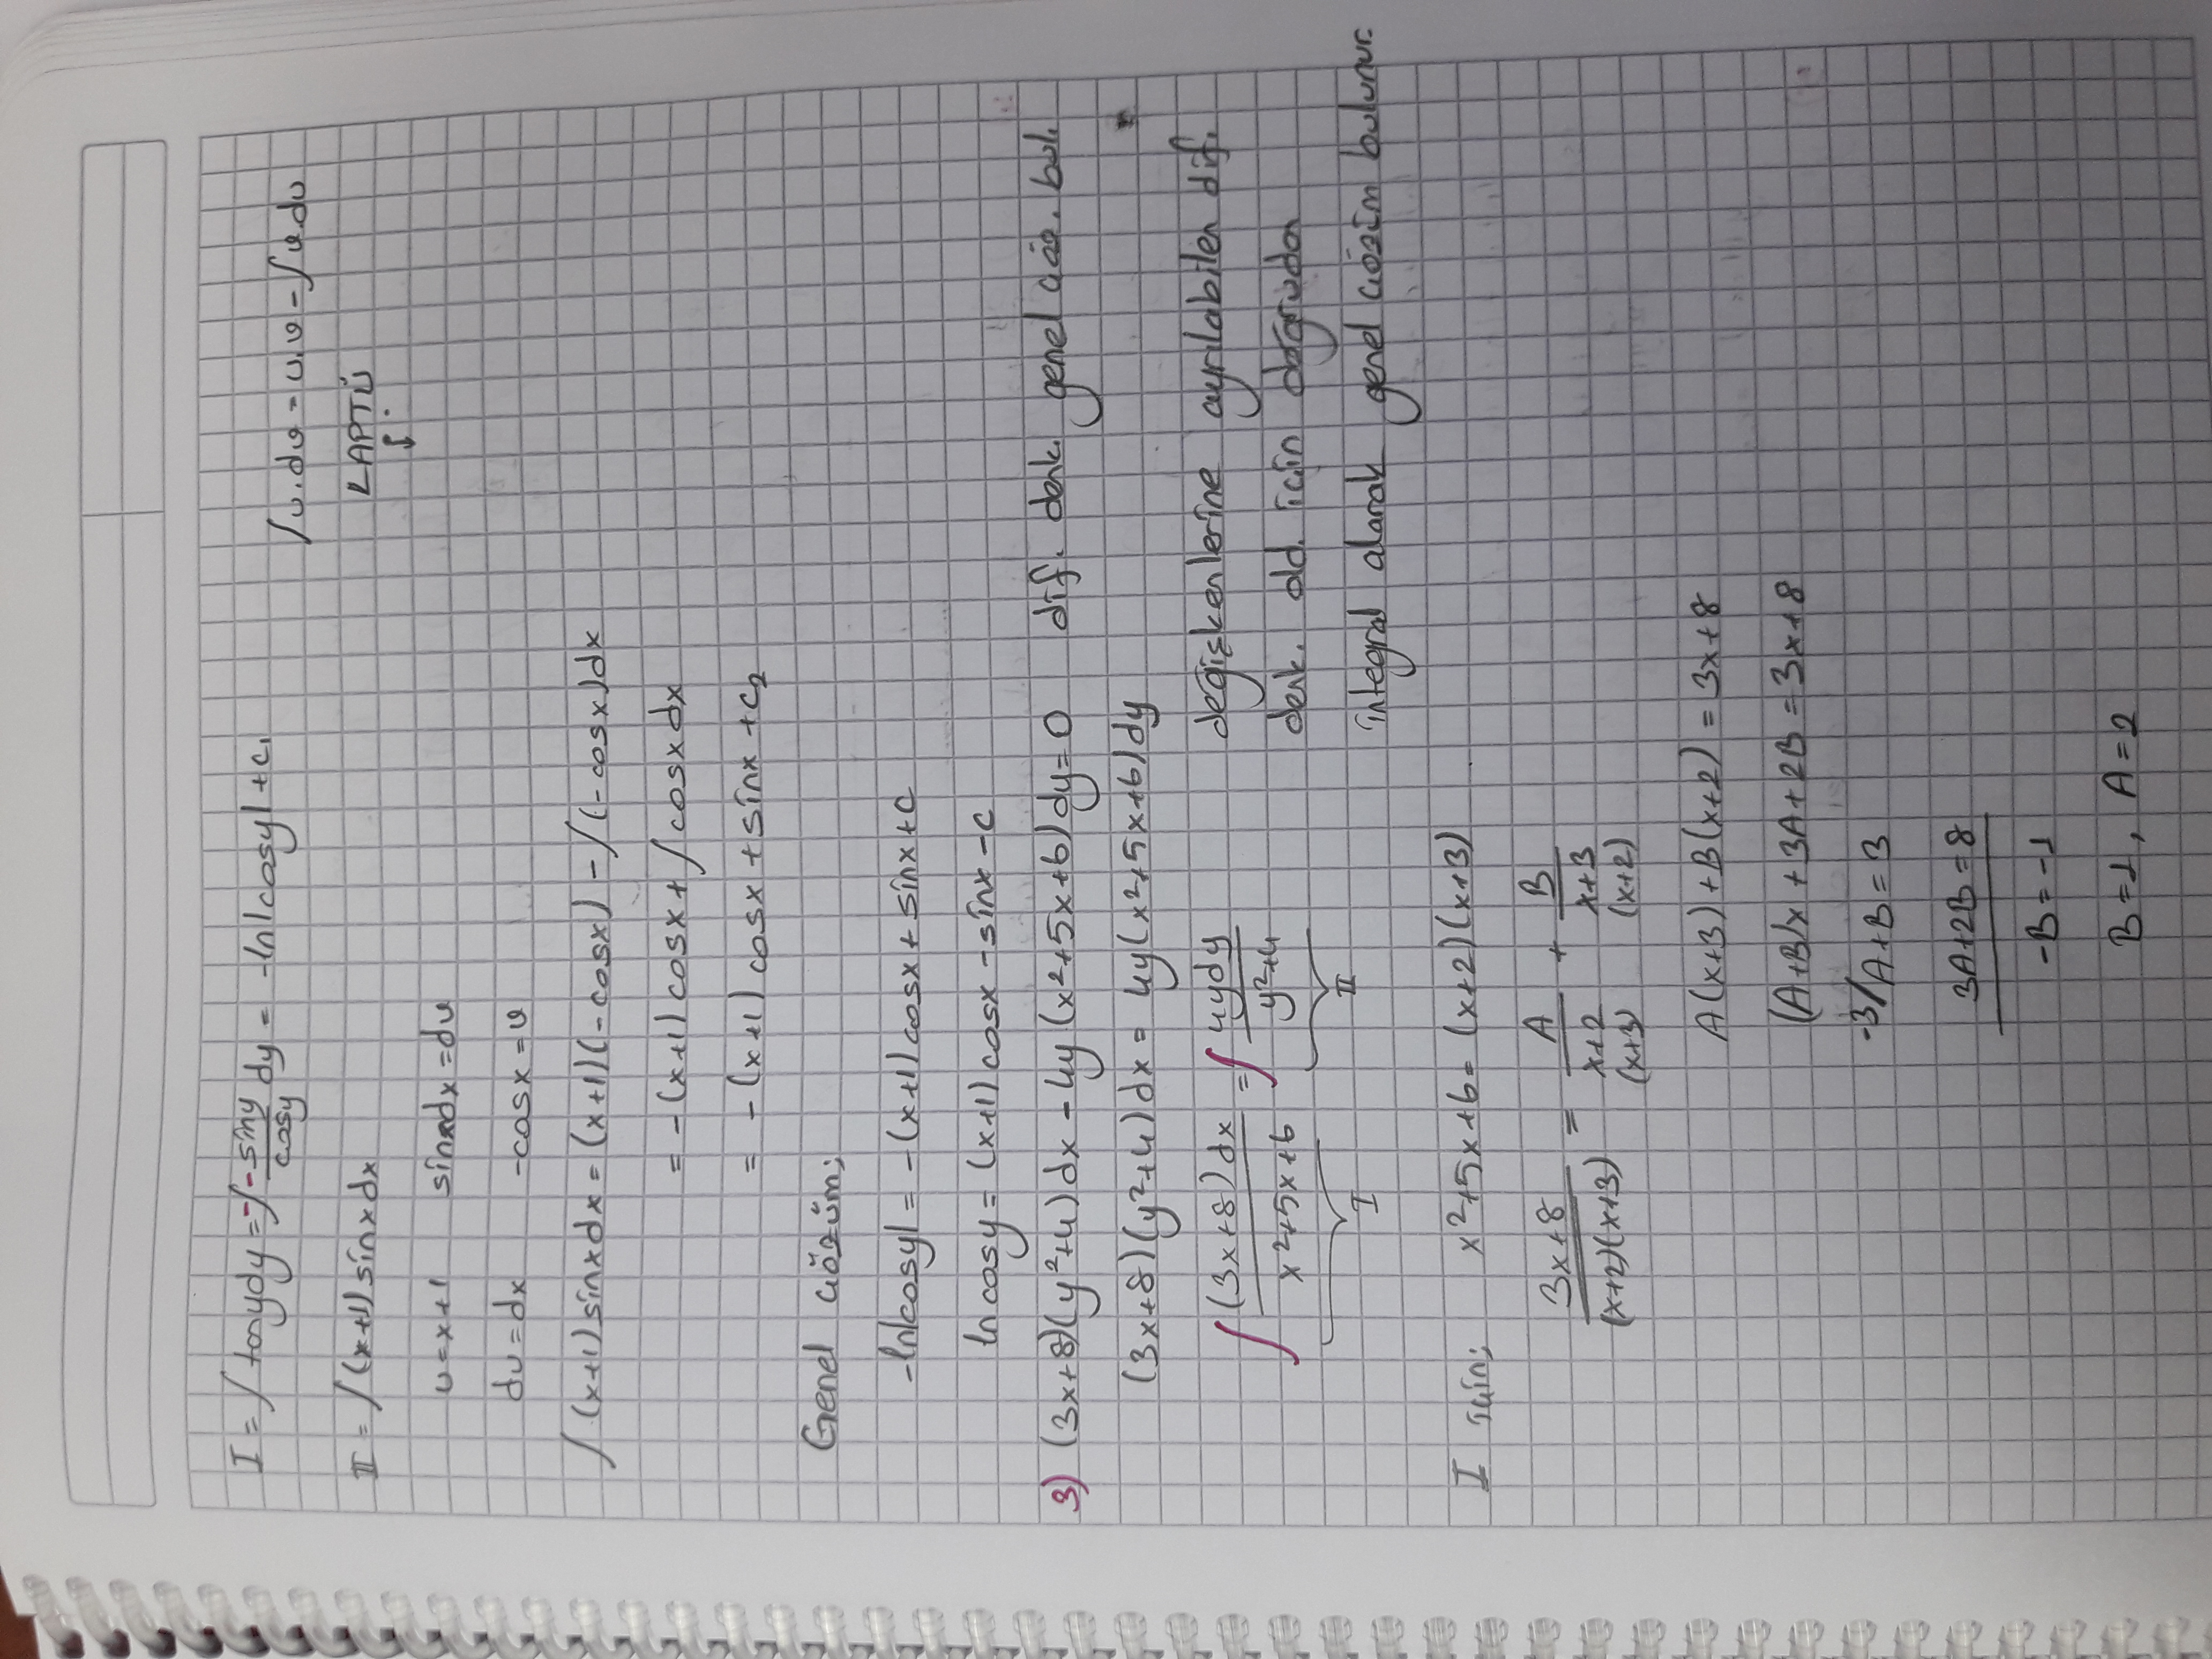 I = ∫ tanydy = -∫ -siny/cosy dy = -ln|cosy| + c₁
∫u.dv = u.v - ∫v.du
II = ∫(x+1) sinx dx
LAPTÜ
↓
u = x+1 sinxdx = dv
du = dx -cosx = v
∫(x+1) sinx dx = (x+1)(-cosx) - ∫(-cosx)dx
= -(x+1) cosx + ∫cosx dx
= -(x+1) cosx + sinx + c₂
Genel çözüm;
-ln|cosy| = -(x+1) cosx + sinx + c
ln cosy = (x+1) cosx - sinx - c
3) (3x+8)(y²+4) dx - 4y (x²+5x+6) dy = 0 dif. denk. genel çöz. bul.
(3x+8)(y²+4) dx = 4y(x²+5x+6) dy
∫ (3x+8) dx / x²+5x+6 = ∫ 4ydy / y²+4
I II
değişkenlerine ayrılabilen dif.
denk. old. için doğrudan
integral alarak genel çözüm bulunur.
I için; x²+5x+6 = (x+2)(x+3)
3x+8 / (x+2)(x+3) = A / x+2 + B / x+3
(x+3) (x+2)
A(x+3) + B(x+2) = 3x+8
(A+B)x + 3A+2B = 3x+8
-3/ A+B = 3
3A+2B = 8
-B = -1
B = 1, A = 2